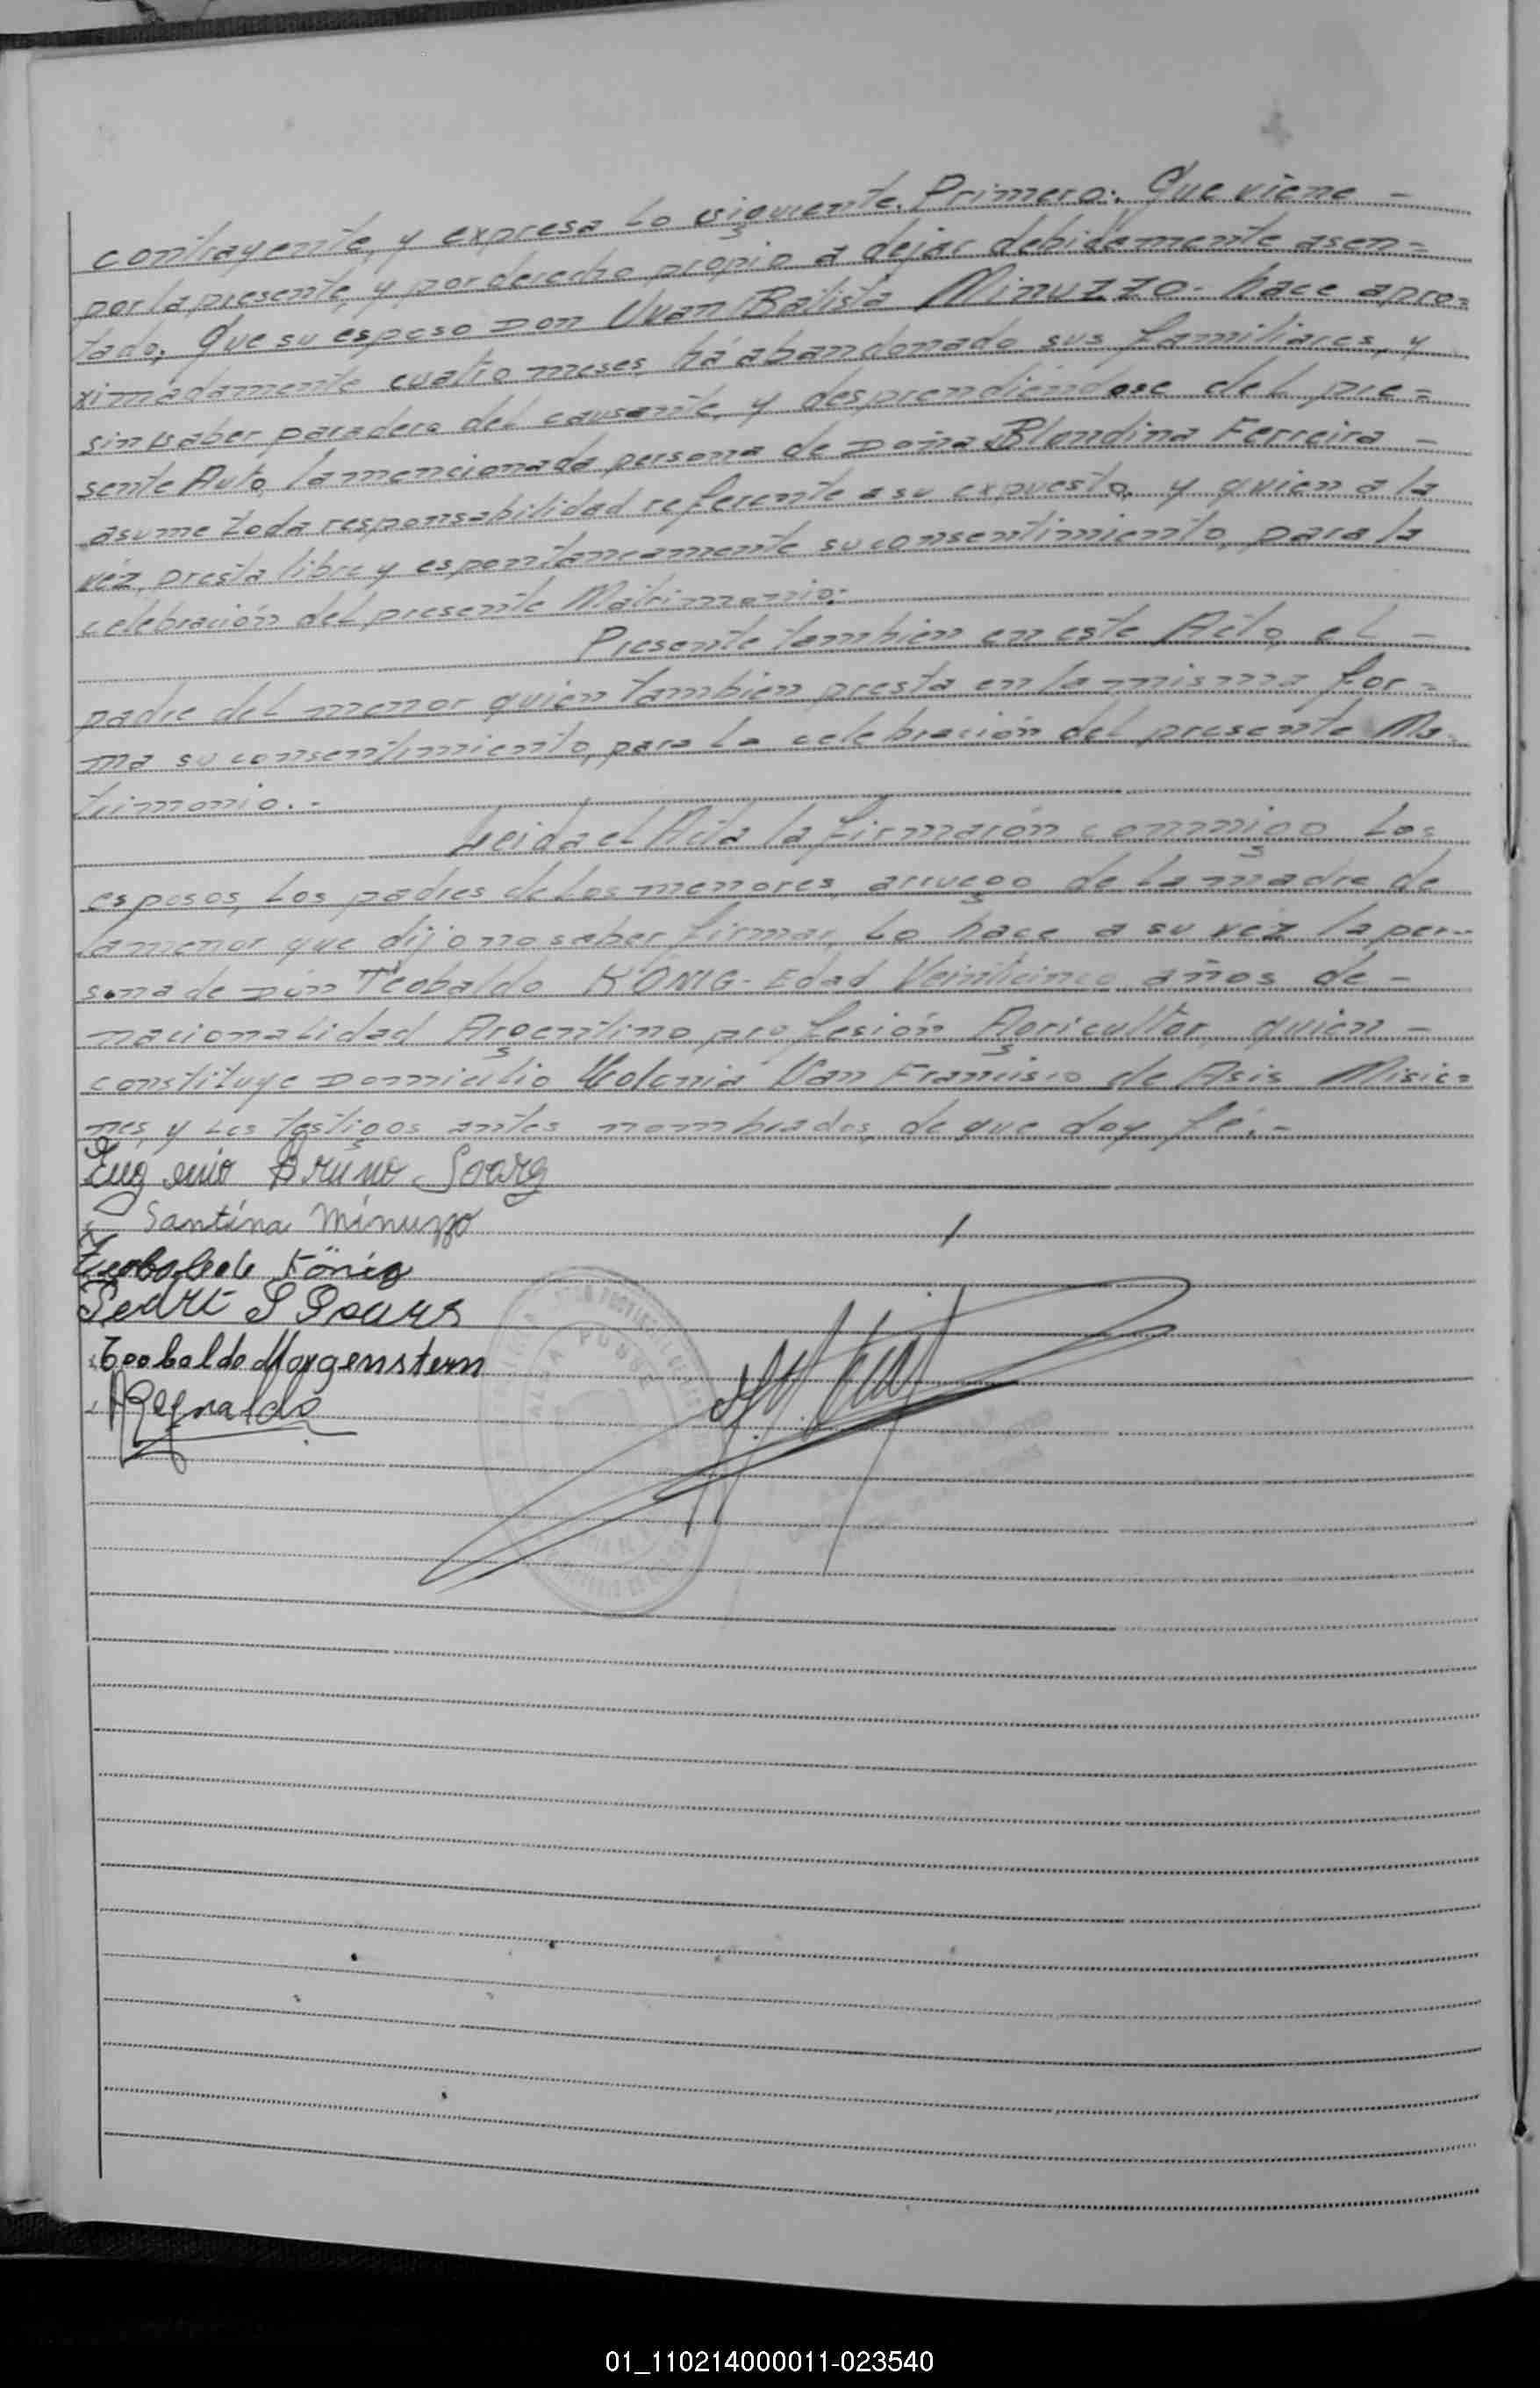 contrayente, y expresa lo siguiente. Primero: Que viene -
por la presente, y por derecho propio a dejar debidamente asen=
tado, Que su esposo Don Juan Batista Minuzzo - hace apro=
ximadamente cuatro meses, há abandonado sus familiares, y
sin saber paradero del causante, y desprendiéndose del pre=
sente Auto, la mencionada persona de Doña Blondina Ferreira -
asume toda responsabilidad referente a su expuesto, y quien a la
véz, presta libre y espontaneamente su consentimiento, para la
celebración del presente Matrimonio:
Presente tambien en este Acto, el -
padre del menor quien tambien presta en la misma for=
ma su consentimiento, para la celebración del presente Ma=
trimonio. -
Leida el Acta la firmarón conmigo Los
esposos, Los padres de Los menores, arruego de La madre de
la menor que dijo no saber firmar, Lo hace a su véz la per--
sona de Dón Teobaldo KÖNIG - Edad Veinticinco años de -
nacionalidad Argentino profesión Agricultor, quien -
constituye Domicilio Colonia San Francisco de Asis Misio=
nes, y Los testigos antes nombrados, de que doy fé. -
Eugenio Bruno
Santina Minuzzo
König
Teobaldo Morgenstern
Reynaldo
ALBA POSSE
01_110214000011-023540